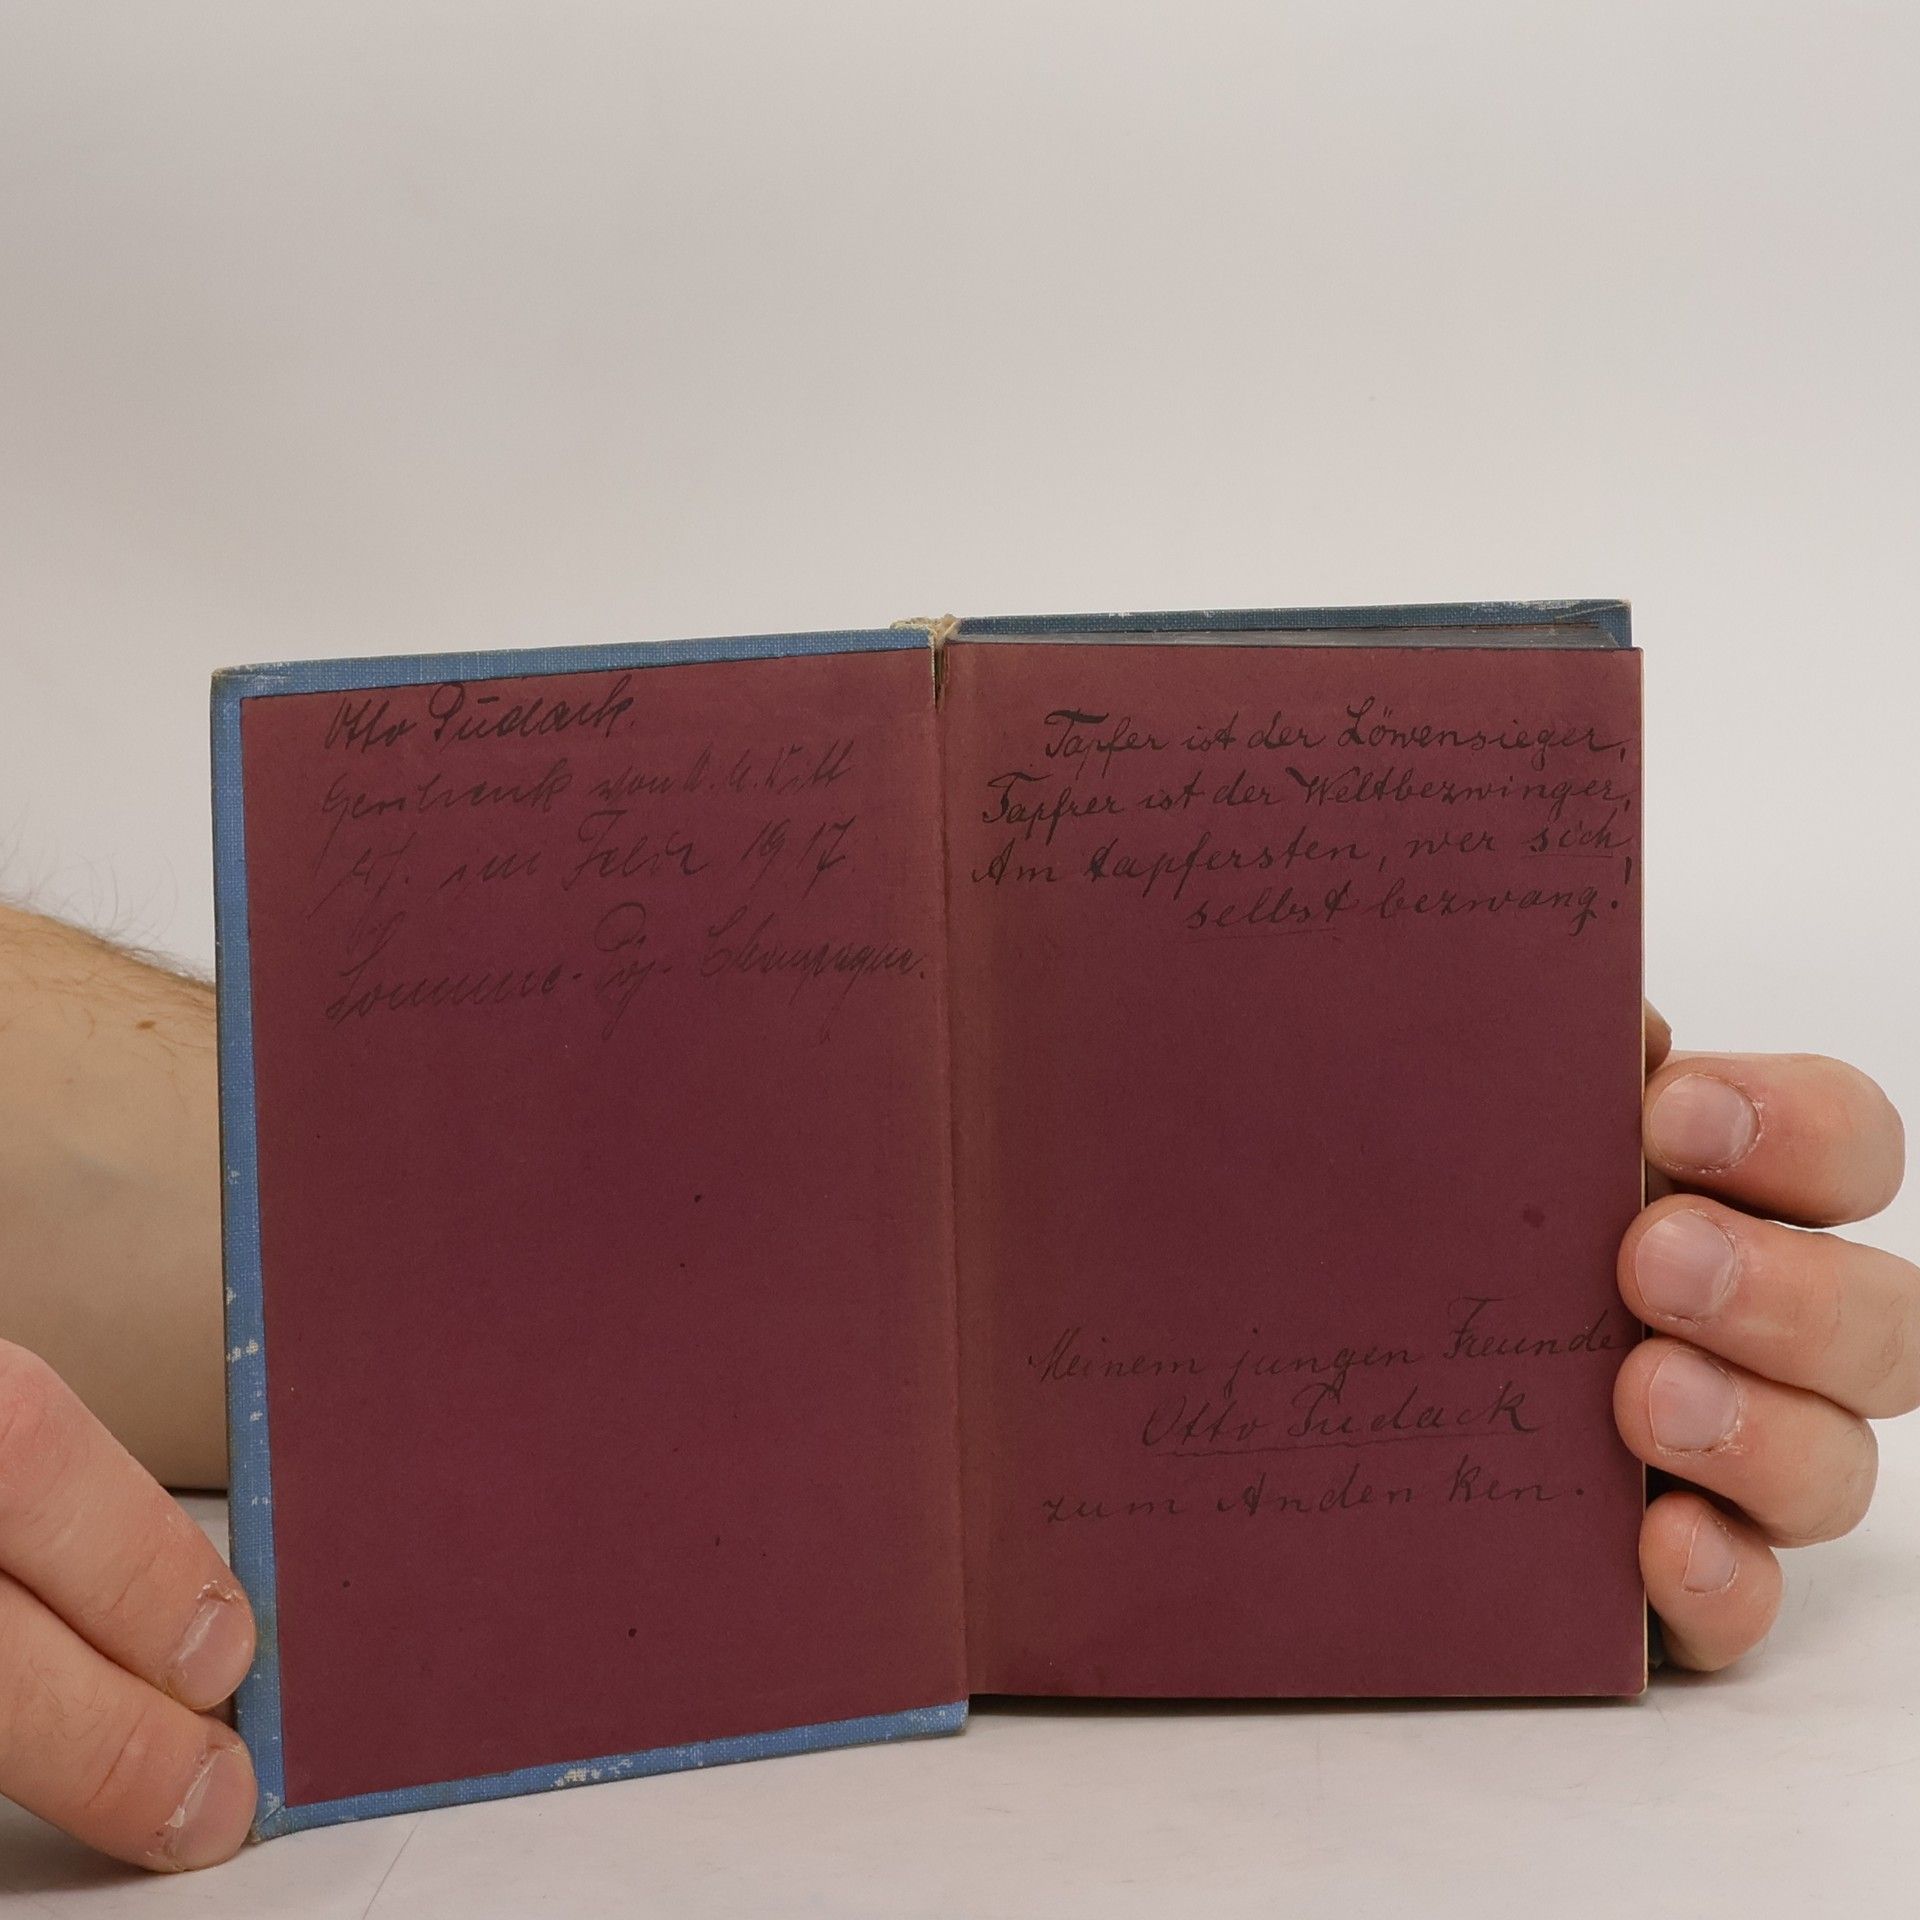 Otto Pudack.
Geschenk von
im Febr 1917.
Somme- Py- Champagne.
Tapfer ist der Löwensieger,
Tapfrer ist der Weltbezwinger,
Am tapfersten, wer sich
selbst bezwang!
Meinem jungen Freunde
Otto Pudack
zum Andenken.